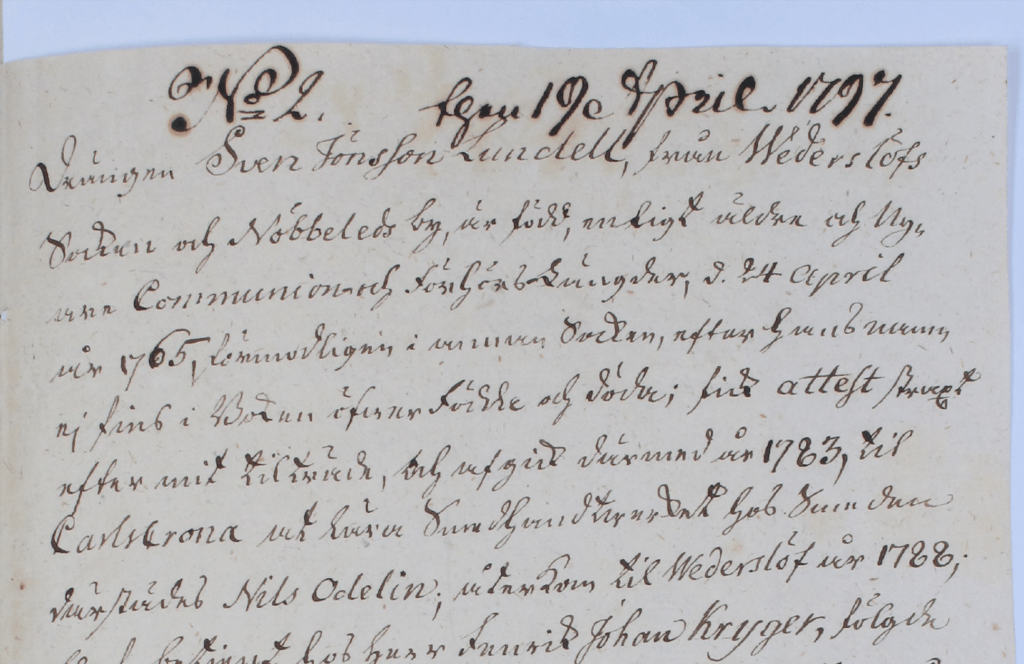 No 2. then 19de April. 1797.
Drängen Sven Jönsson Lundell, från Wederslöfs
Socken och Nöbbeleds by, är född, enligt äldre och Ny-
are Communion och Förhörs Längder, d. 24 April
år 1765, förmodligen i annan Socken, efter hans namn
ej fins i Boken öfwer Födde och döda; fick attest straxt
efter mit tilträde, och afgick därmed år 1783, til
Carlscrona at lära Smedhandtwerket hos Smeden
därstädes Nils Odelin; återkom til Wederslöf år 1788;
betjent hos Herr Fenrik Johan Kryger, följde